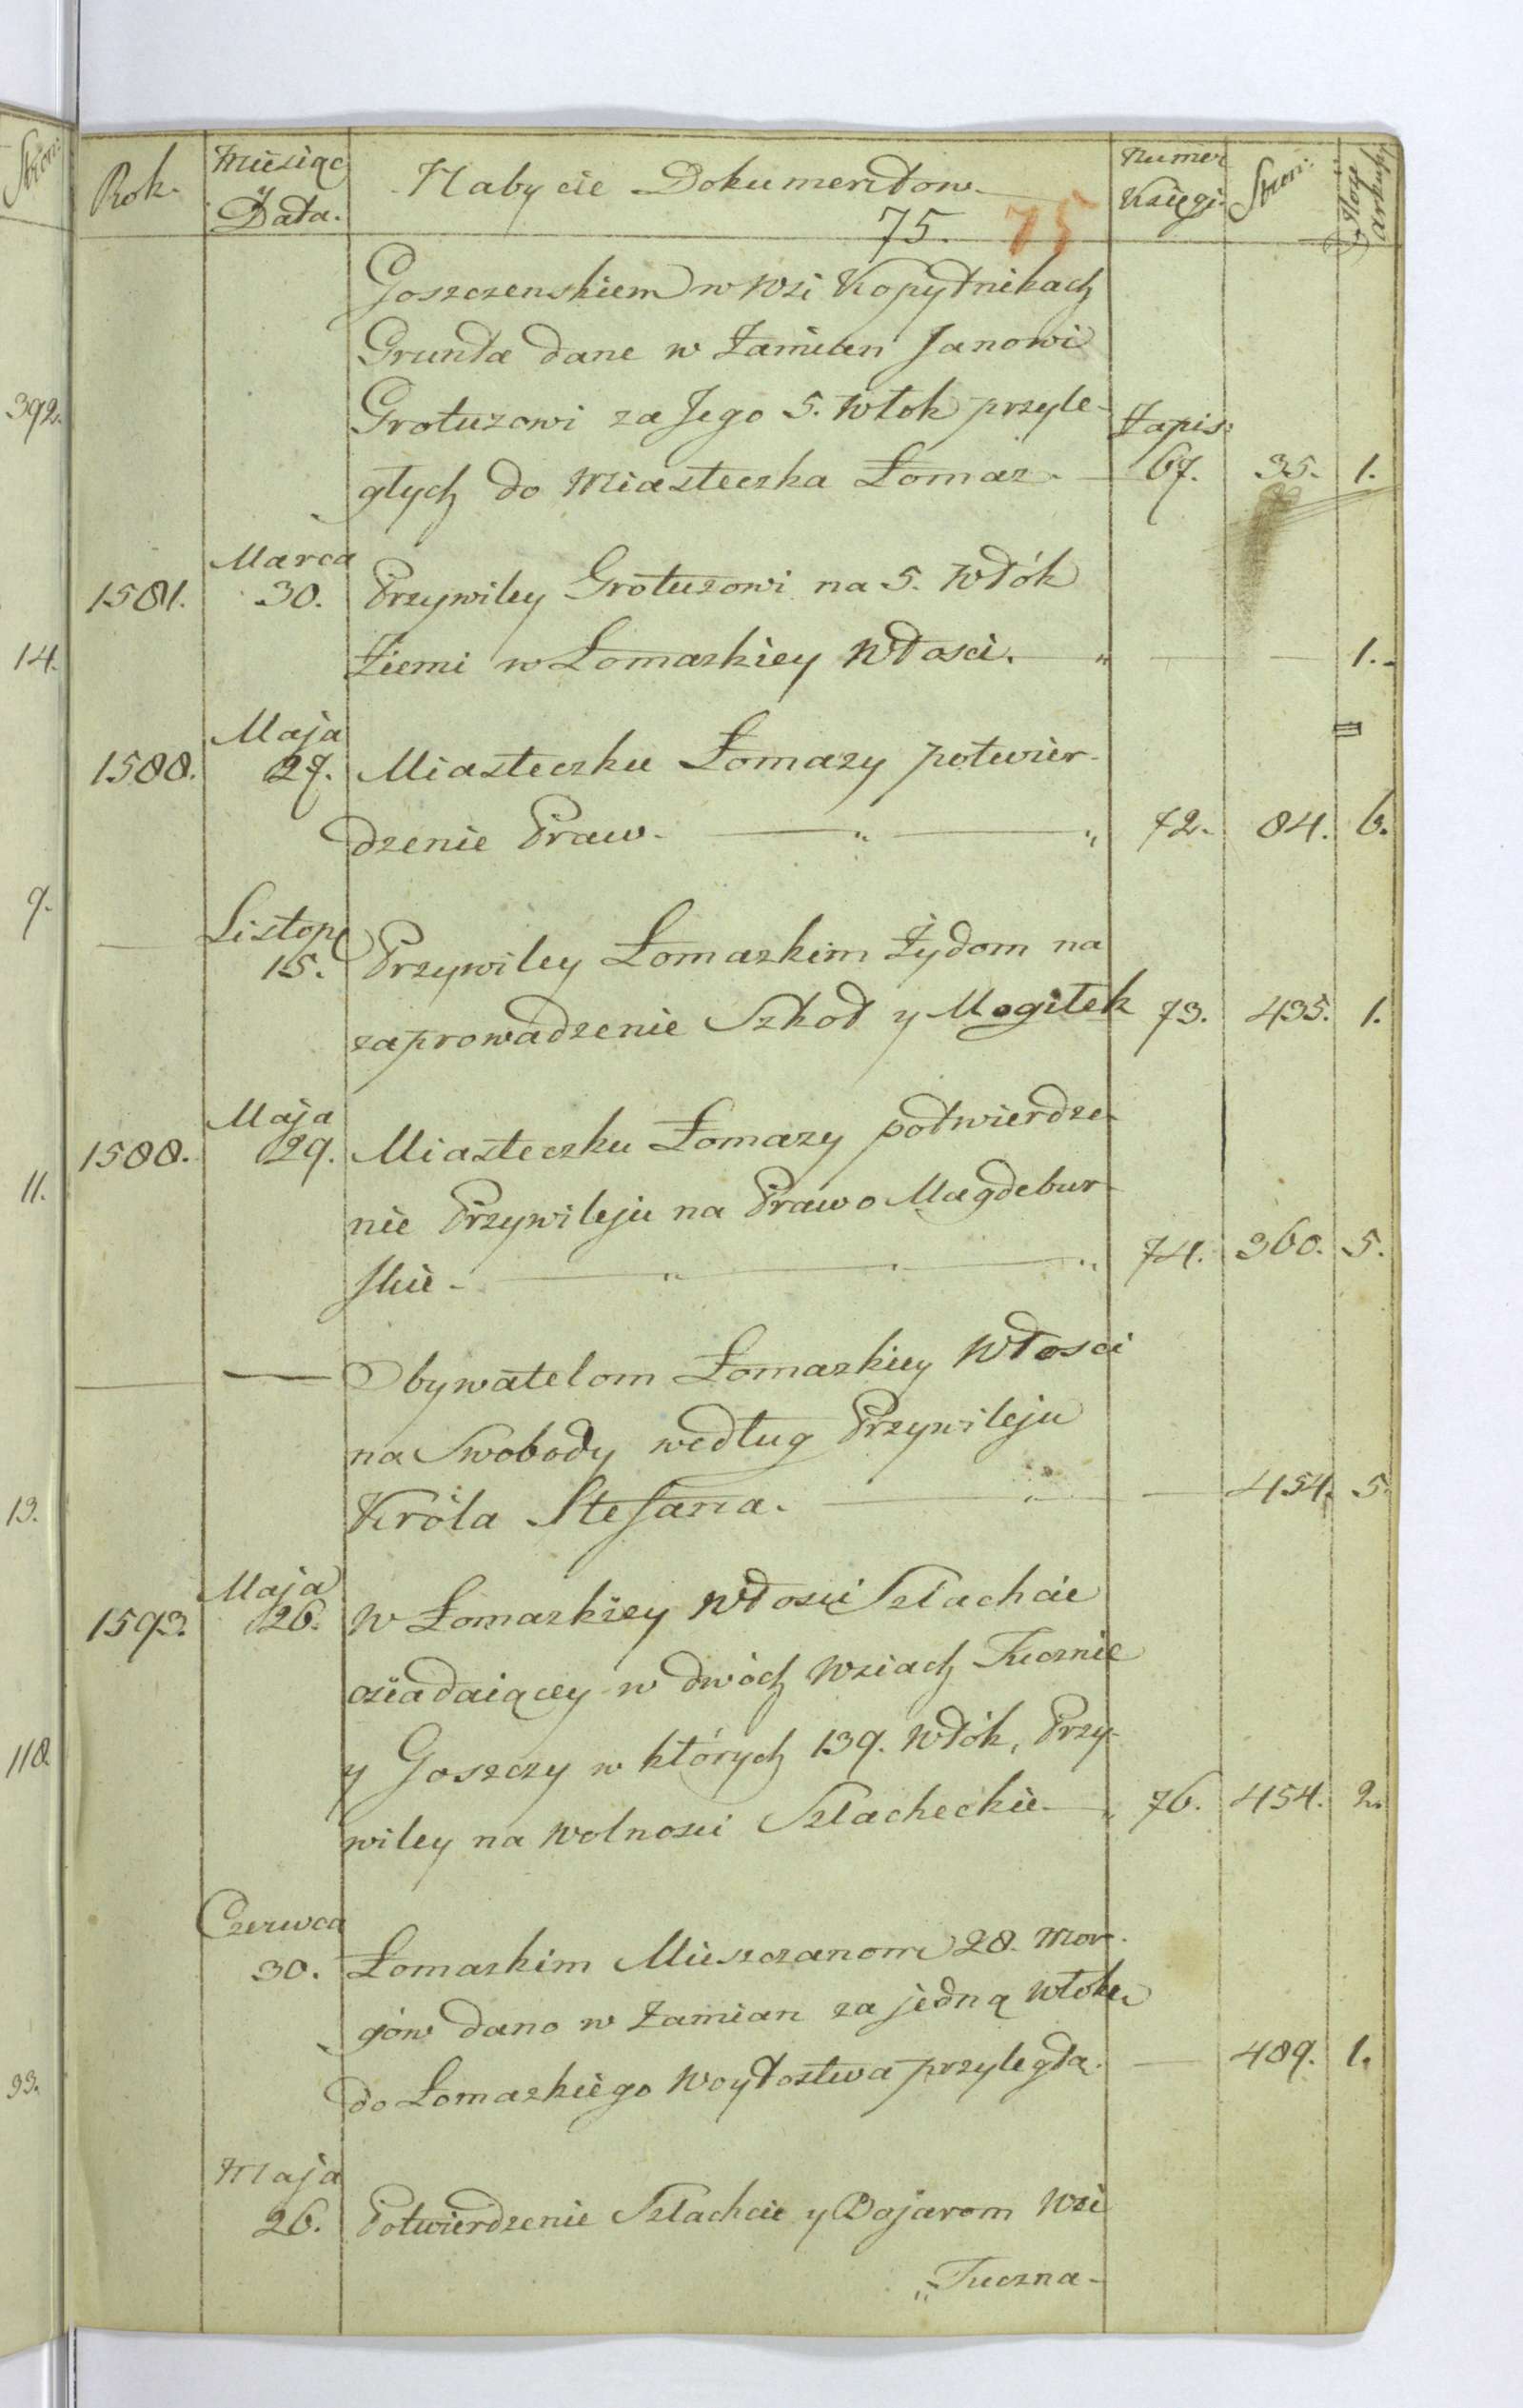 Stron:
Rok. Miesiąc y Data. Nabycie Dokumentow. Numer Księgi. Stron: Ilosc arkuszy
75. 75
Goszczenskiem w Wsi Kopytnikach
Grunta dane w Zamian Janowi
392. Grotuzowi za Jego 5. Włok przyle- Zapis:
głych do Miasteczka Łomaz. 67. 35. 1.
Marca
1581. 30. Przywiley Grotuzowi na 5. Włók
14. Ziemi w Łomazkiey Włosci. „ — — 1.
Maja
1588. 27. Miasteczku Łomazy potwier-
dzenie Praw. — „ — „ 72. 84. 6.
9.
Listop
— 15. Przywiley Łomazkim Żydom na
zaprowadzenie Szkoł y Mogiłek 73. 435. 1.
Maja
1588. 29. Miasteczku Łomazy potwierdze-
11. nie Przywileju na Prawo Magdebur-
skie — „ — „ 74. 360. 5.
— — Obywatelom Łomazkiey Włosci
na Swobody według Przywileju
13. Króla Stefana. — „ — — 454. 5.
Maja
1593. 26. W Łomazkiey Włosci Szlachcie
osiadaiącey w dwóch Wsiach Tucznie
118. y Goszczy w których 139. Włók, Przy-
wiley na Wolnosci Szlacheckie — „ 76. 454. 2.
Czerwca
30. Łomazkim Mieszczanom 28. Mor-
gów dano w Zamian za jedną Włokę
93. do Łomazkiego Woytostwa przyległą. — 489. 1.
Maja
26. Potwierdzenie Szlachcie y Bojarom Wsi
„Tuczna-